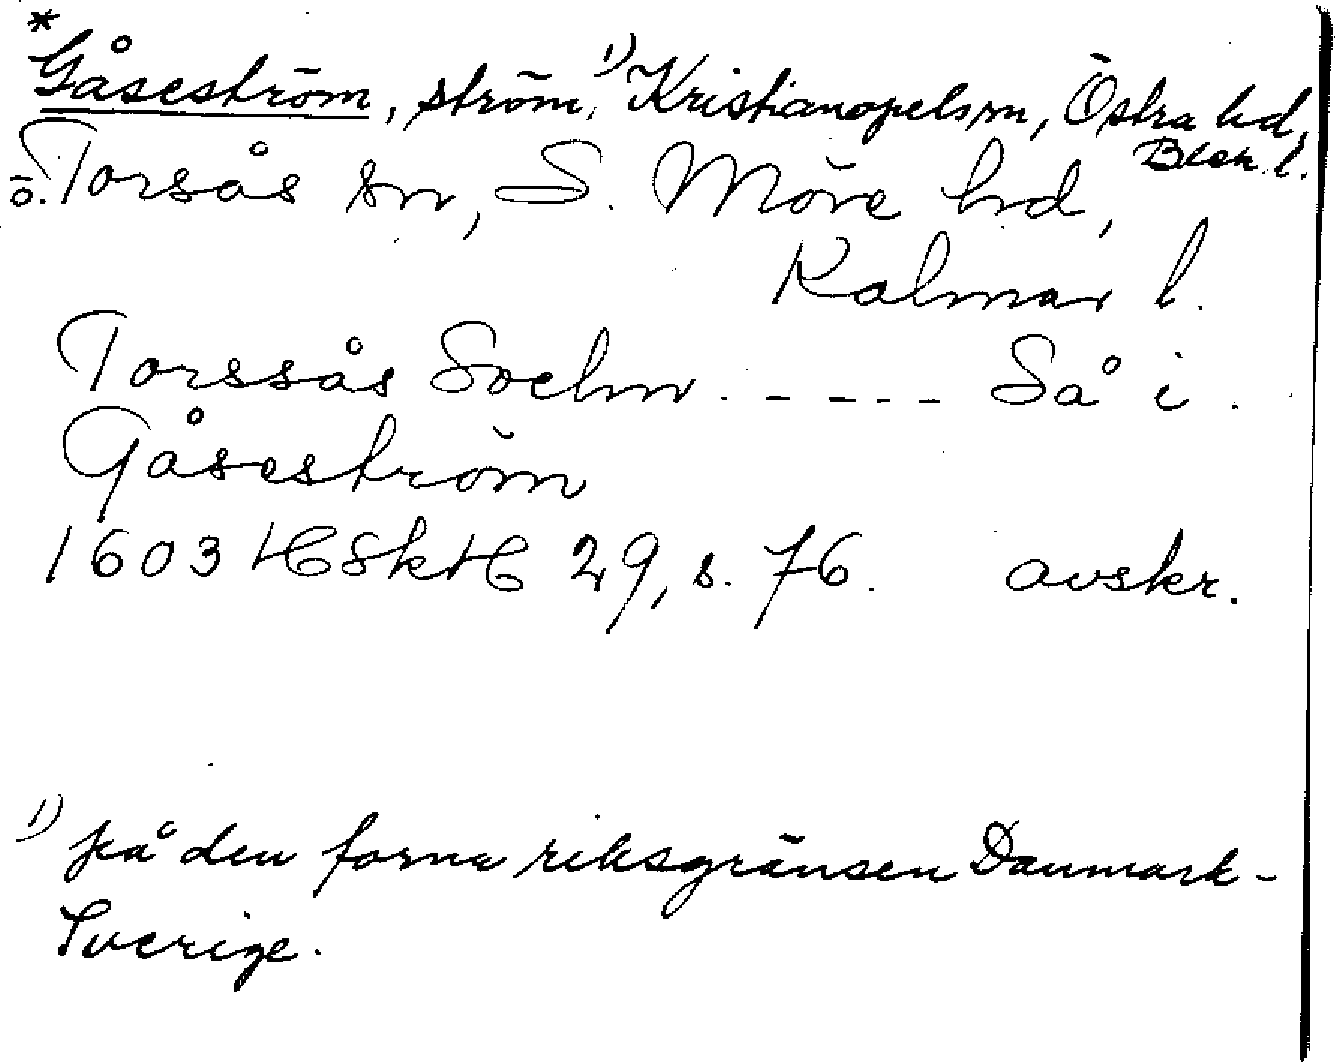 *Gåseström, ström,¹⁾ Kristianopels sn, Östra hd, Blek. l.
o. Torsås sn, S. Möre hd,
Kalmar l.
Torssås Sochn. - - - - - Så i.
Gåseström
1603 HSkH 29, s. 76. avskr.
¹⁾ på den forna riksgränsen Danmark-
Sverige.